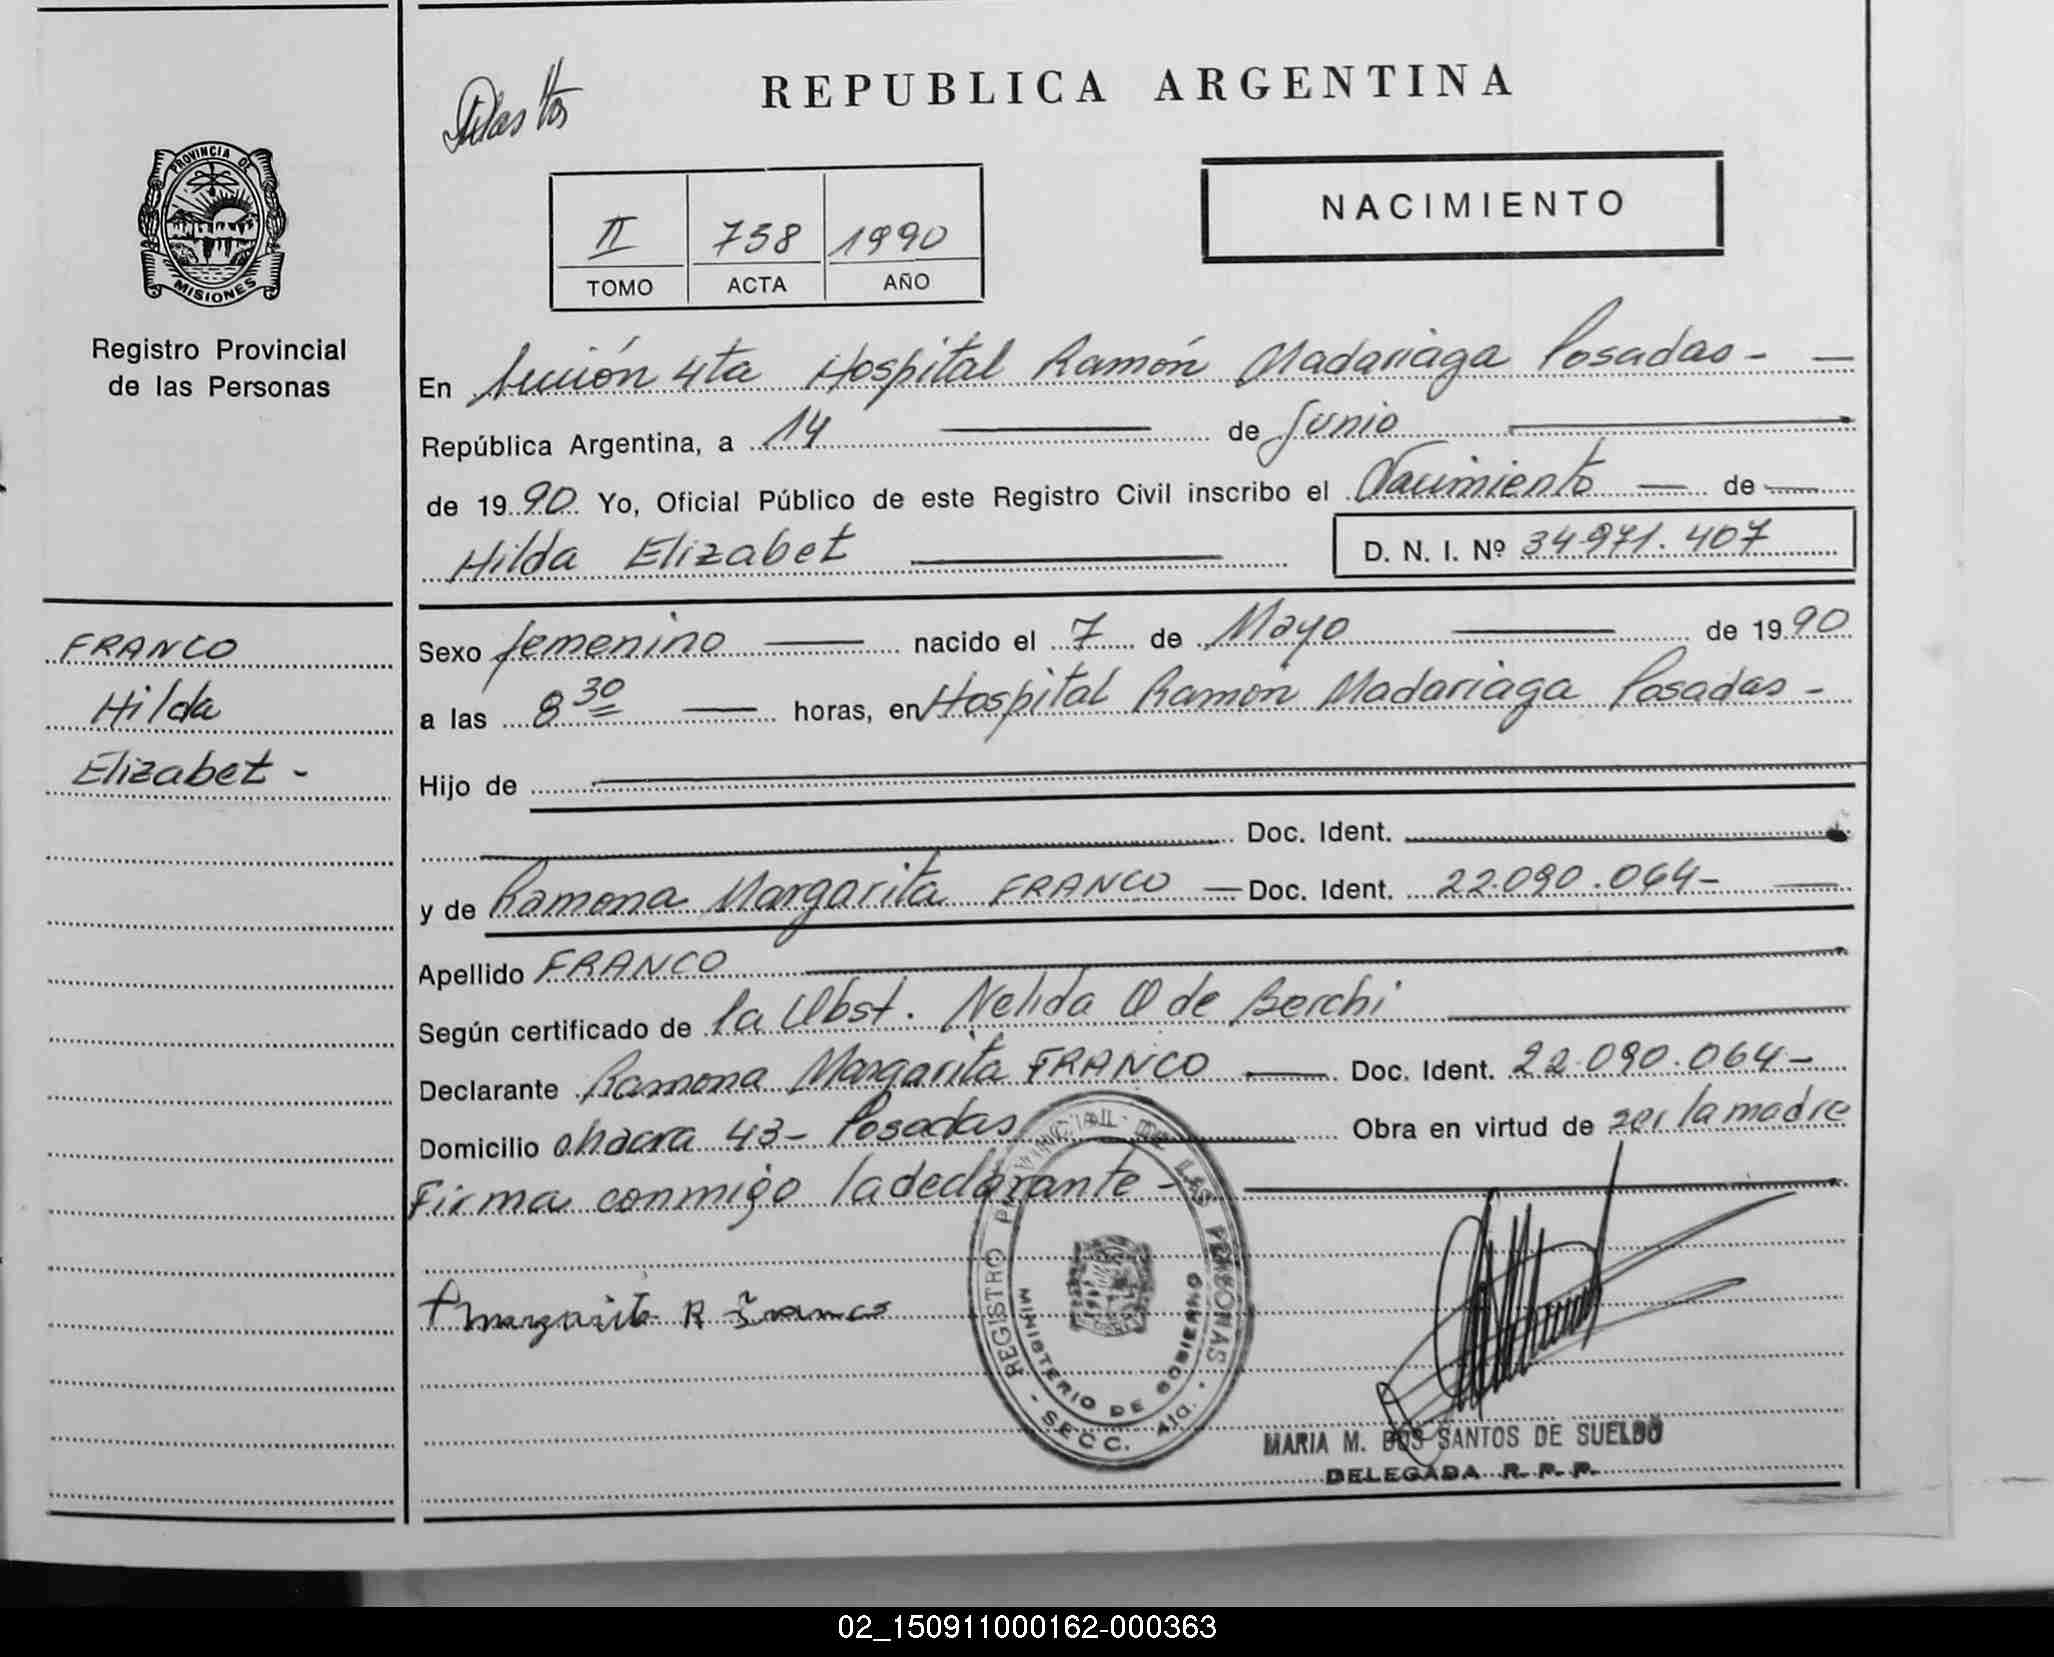 REPUBLICA ARGENTINA
PROVINCIA DE
MISIONES
Registro Provincial
de las Personas
NACIMIENTO
II 738 1990
TOMO ACTA AÑO
En Sección 4ta Hospital Ramón Madariaga Posadas - —
República Argentina, a 14 — de Junio —
de 1990 Yo, Oficial Público de este Registro Civil inscribo el Nacimiento — de —
Hilda Elizabet —
D. N. I. Nº 34.971.407
FRANCO
Hilda
Elizabet -
Sexo femenino — nacido el 7 de Mayo — de 1990
a las 8 30 — horas, en Hospital Ramón Madariaga Posadas -
Hijo de —
Doc. Ident. —
y de Ramona Margarita FRANCO — Doc. Ident. 22.090.064 - —
Apellido FRANCO —
Según certificado de la Obst. Nelida O de Berchi —
Declarante Ramona Margarita FRANCO — Doc. Ident. 22.090.064 -
Domicilio chacra 43 - Posadas — Obra en virtud de ser la madre
Firma conmigo la declarante - —
Margarita R Franco
REGISTRO PROVINCIAL DE LAS PERSONAS
MINISTERIO DE GOBIERNO
- SECC. 4ta. -
MARIA M. DOS SANTOS DE SUELDO
DELEGADA R. P. P.
02_150911000162-000363